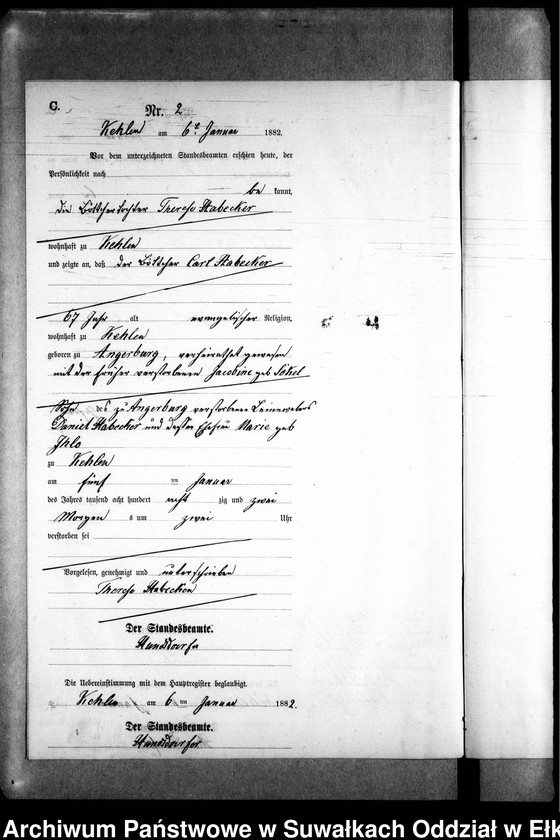 C.
Nr. 2
Kehlen am 6t Januar 1882.
Vor dem unterzeichneten Standesbeamten erschien heute, der
Persönlichkeit nach
be kannt,
die Böttchertochter Therese Habecker
wohnhaft zu Kehlen
und zeigte an, daß der Böttcher Carl Habecker
67 Jahr alt evangelischer Religion,
wohnhaft zu Kehlen
geboren zu Angerburg, verheirathet gewesen
mit der früher verstorbenen Jacobine geb
Sohn des zu Angerburg verstorbenen Leinewebers
Daniel Habecker und dessen Ehefrau Marie geb
zu Kehlen
am fünf ten Januar
des Jahres tausend acht hundert acht zig und zwei
Morgen s um zwei Uhr
verstorben sei
Vorgelesen, genehmigt und unterschrieben
Therese Habecker
Der Standesbeamte.
Die Uebereinstimmung mit dem Hauptregister beglaubigt.
Kehlen am 6 ten Januar 1882.
Der Standesbeamte.
Archiwum Państwowe w Suwałkach Oddział w Ełk